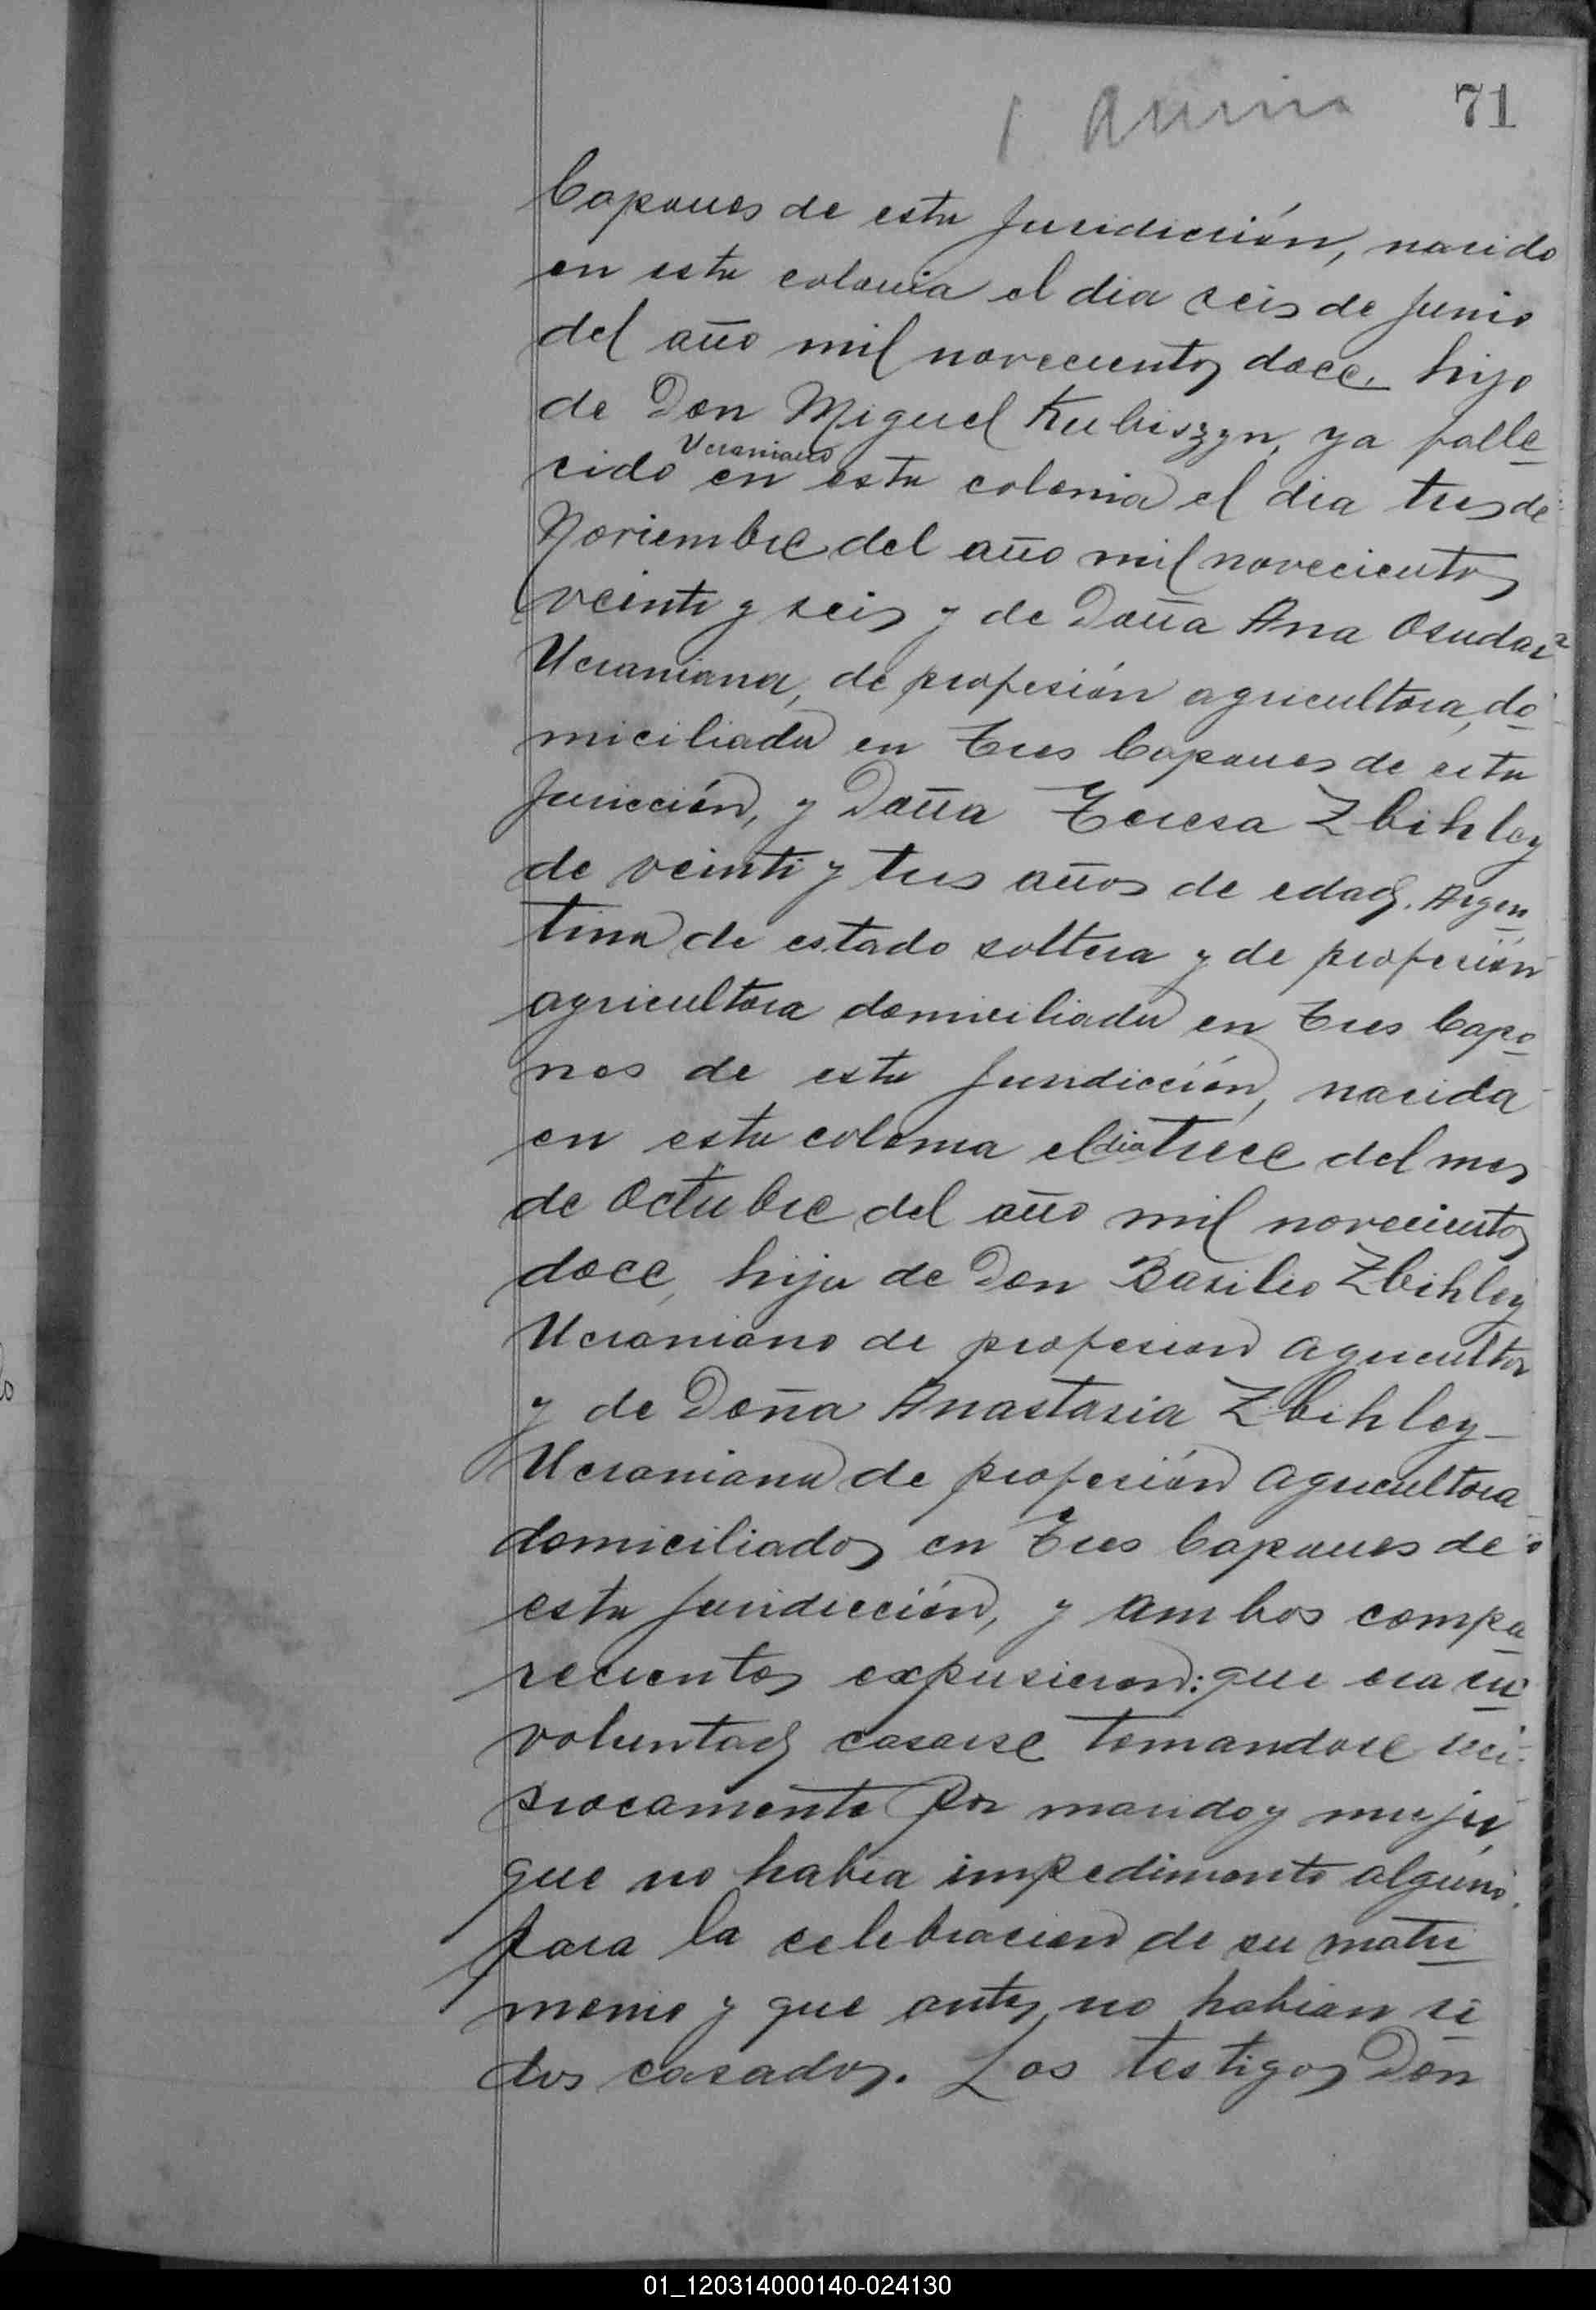 71
Capones de esta Juridicción, nacido
en esta colonia el dia seis de Junio
del año mil novecientos doce, hijo
de Don Miguel Kubiszyn, ya falle
Ucraniano
cido en esta colonia el dia tres de
Noviembre del año mil novecientos
veinti y seis y de Doña Ana Osudar
Ucraniana, de profesión agricultora, do
miciliada en Tres Capones de esta
Juricción, y Doña Teresa Zbihley
de veinti y tres años de edad. Argen
tina de estado soltera y de profesión
agricultora domiciliada en Tres Capo
nes de esta Juridicción, nacida
en esta colonia el dia trece del mes
de Octubre del año mil novecientos
doce, hija de Don Basilio Zbihley
Ucraniano de profesion agricultor
y de Doña Anastasia Zbihley
Ucraniana de profesión agricultora
domiciliados en Tres Capones de
esta Juridicción, y ambos compa
recientes expusieron: que era su
voluntad casarse tomandose reci
procamente por marido y mujer,
que no habia impedimento alguno
para la celebracion de su matri
monio y que antes no habian si
dos casados. Los testigos Don
01_120314000140-024130